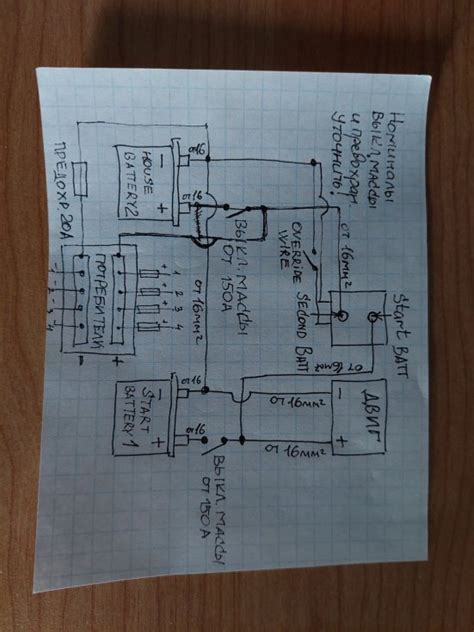 Номиналы
выкл.массы
и предохран
уточнить!
ПРЕДОХР. 20A
- ПОТРЕБИТЕЛИ +
-1
-2
-3
-4
+ 1
+ 2
+ 3
+ 4
-
HOUSE
BATTERY2
+
от 16
от 16
ВЫКЛ. МАССЫ
от 150А
OVERRIDE SECOND BATT
WIRE
от 16мм²
Start BATT
от 16мм²
от 16мм²
-
START
BATTERY1
+
от 16
от 16
ВЫКЛ. МАССЫ
от 150А
от 16мм²
от 16мм²
-
ДВИГ
+